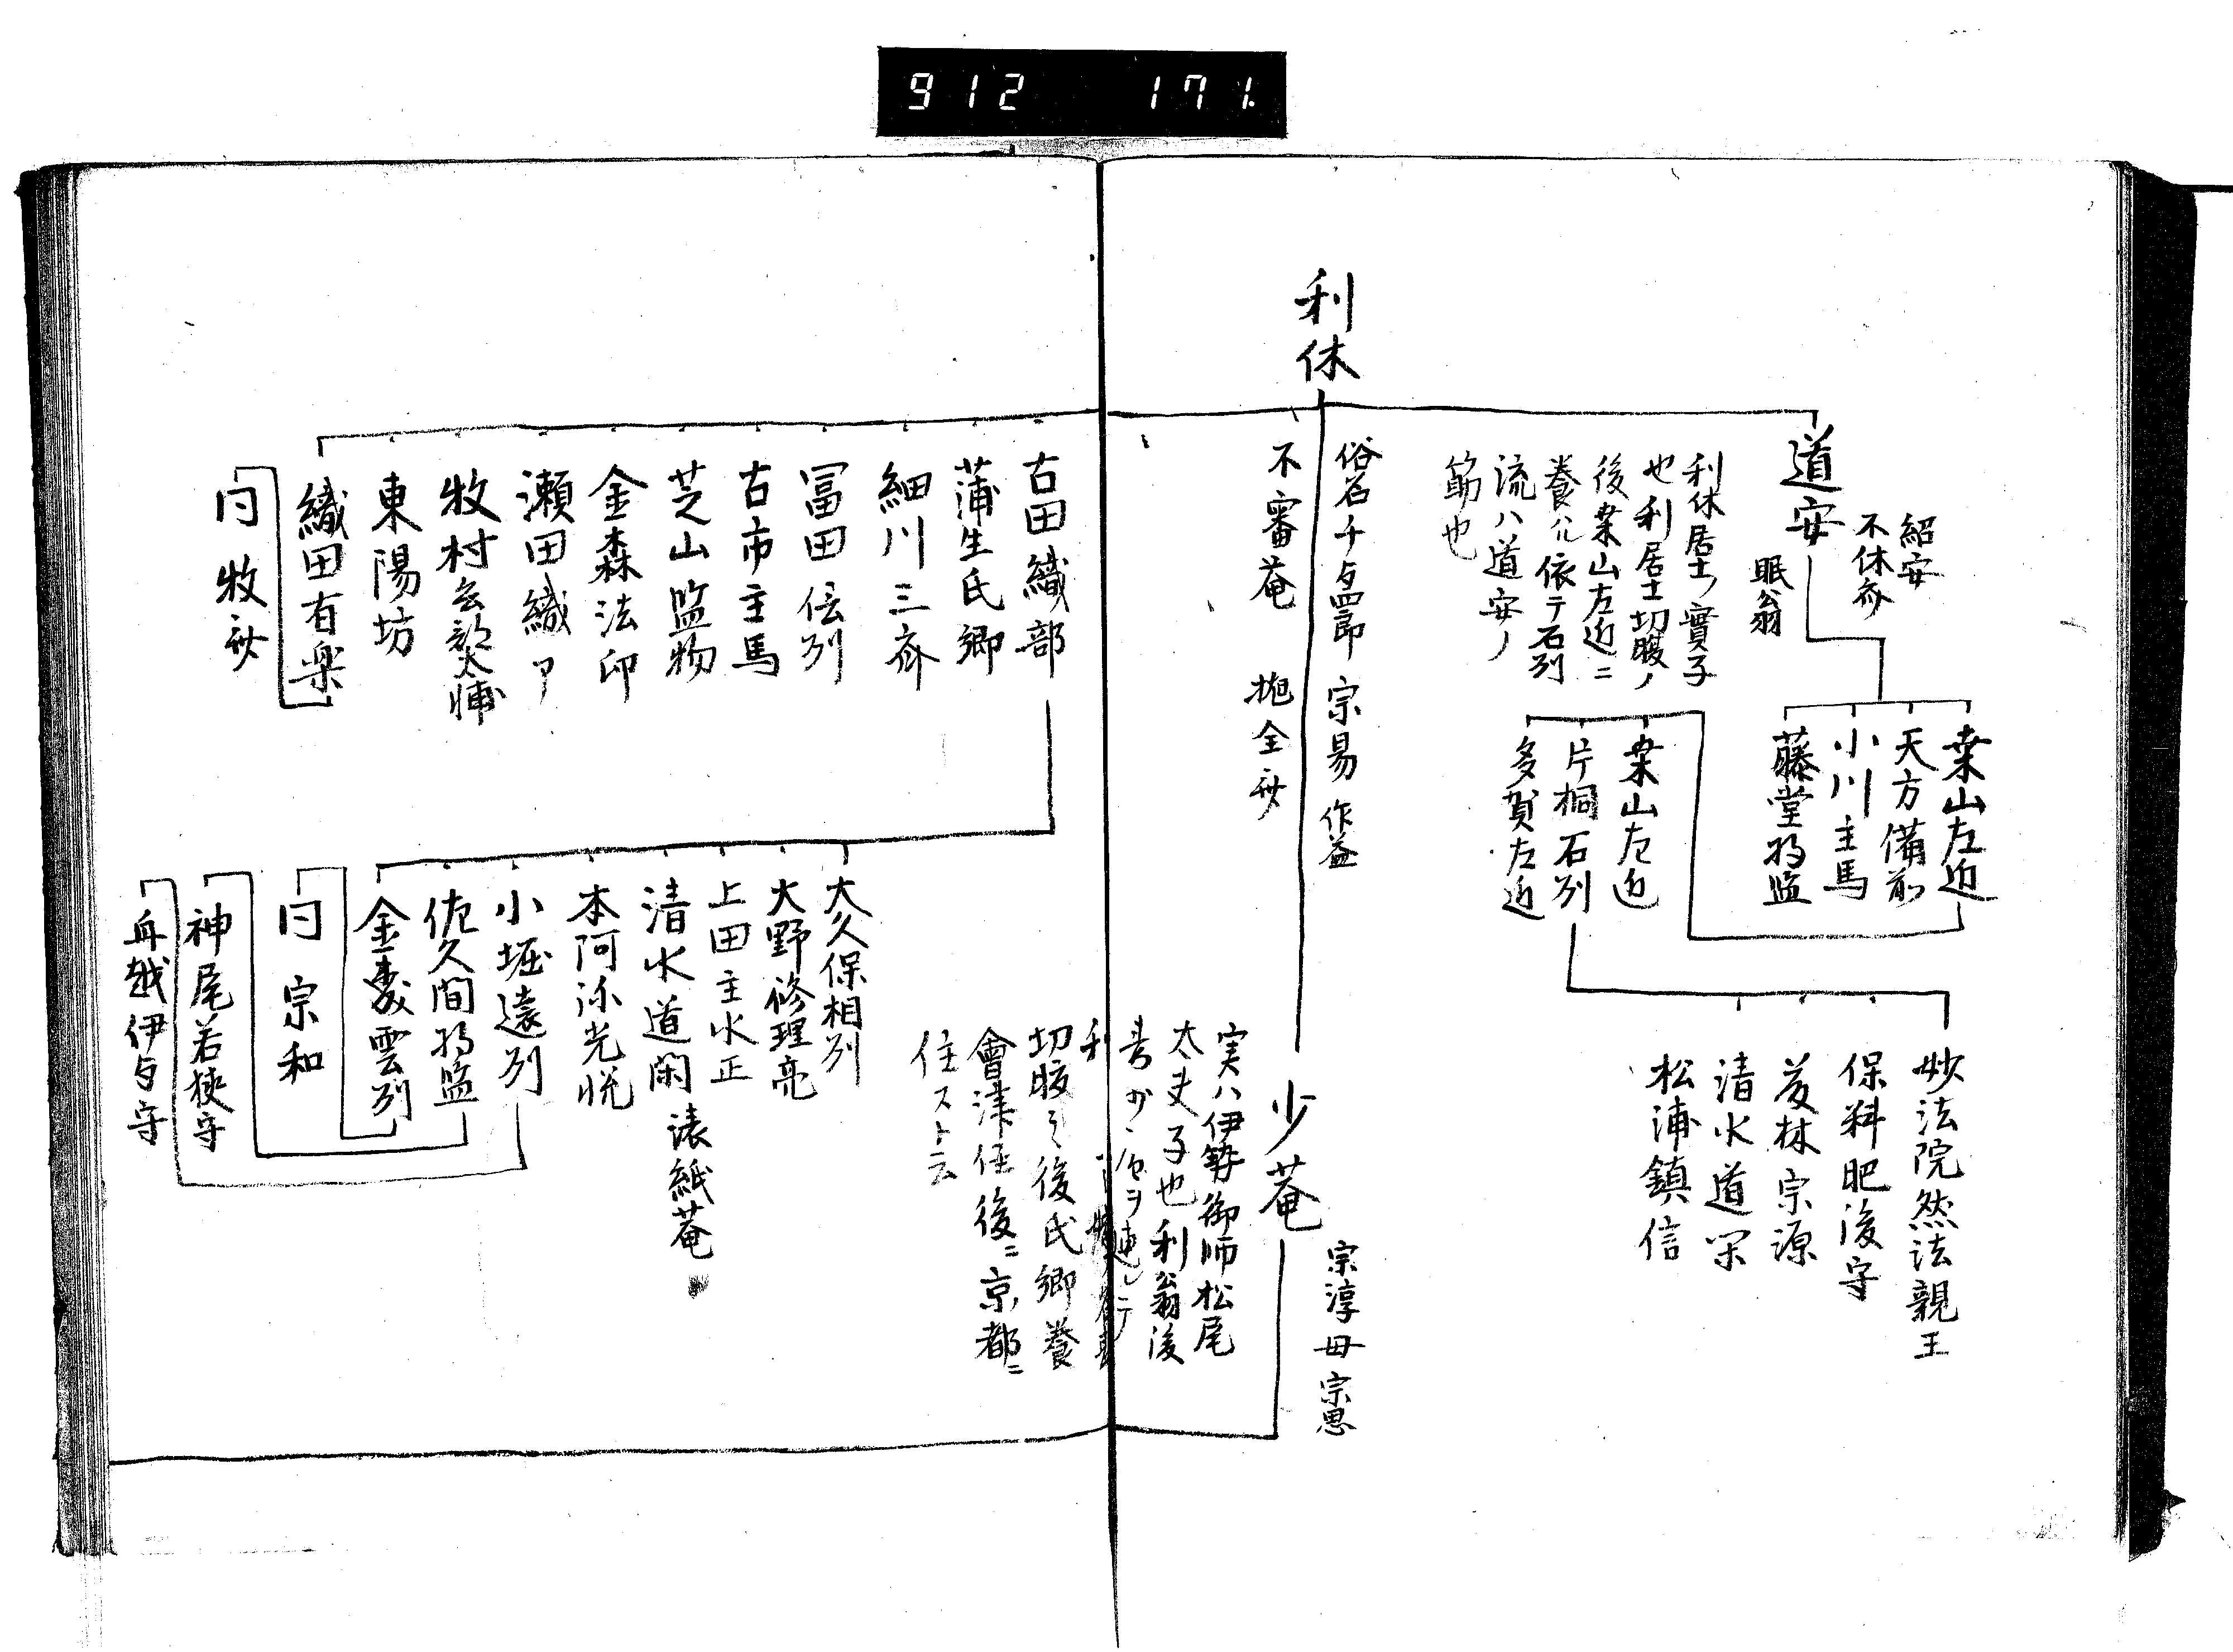 912 171
利休
俗名千與四郎 宗易 作益
不審菴 抛全斎
道安
紹安
不休斎
眠翁
利休居士ノ實子
也利居士切腹ノ
後桒山左近ニ
養ハル依テ石州
流ハ道安ノ
筋也
桒山左近
天方備前
小川主馬
藤堂将監
桒山左近
片桐石州
多賀左近
妙法院然法親王
保科肥後守
茂林宗源
清水道闲
松浦鎮信
少菴
宗淳母宗恩
実ハ伊勢御師松尾
太夫子也利翁後
切腹之後氏卿養
會津住後ニ京都ニ
住スト云
古田織部
蒲生氏卿
細川三斎
冨田信州
古市主馬
芝山監物
金森法印
瀬田織卩
牧村兵部太輔
東陽坊
織田有楽
同牧斎
大久保相州
大野修理亮
上田主水正
清水道閑 蔉紙菴
本阿弥光悦
小堀遠州
佐久間将監
金森雲州
同宗和
神尾若狭守
舟越伊与守